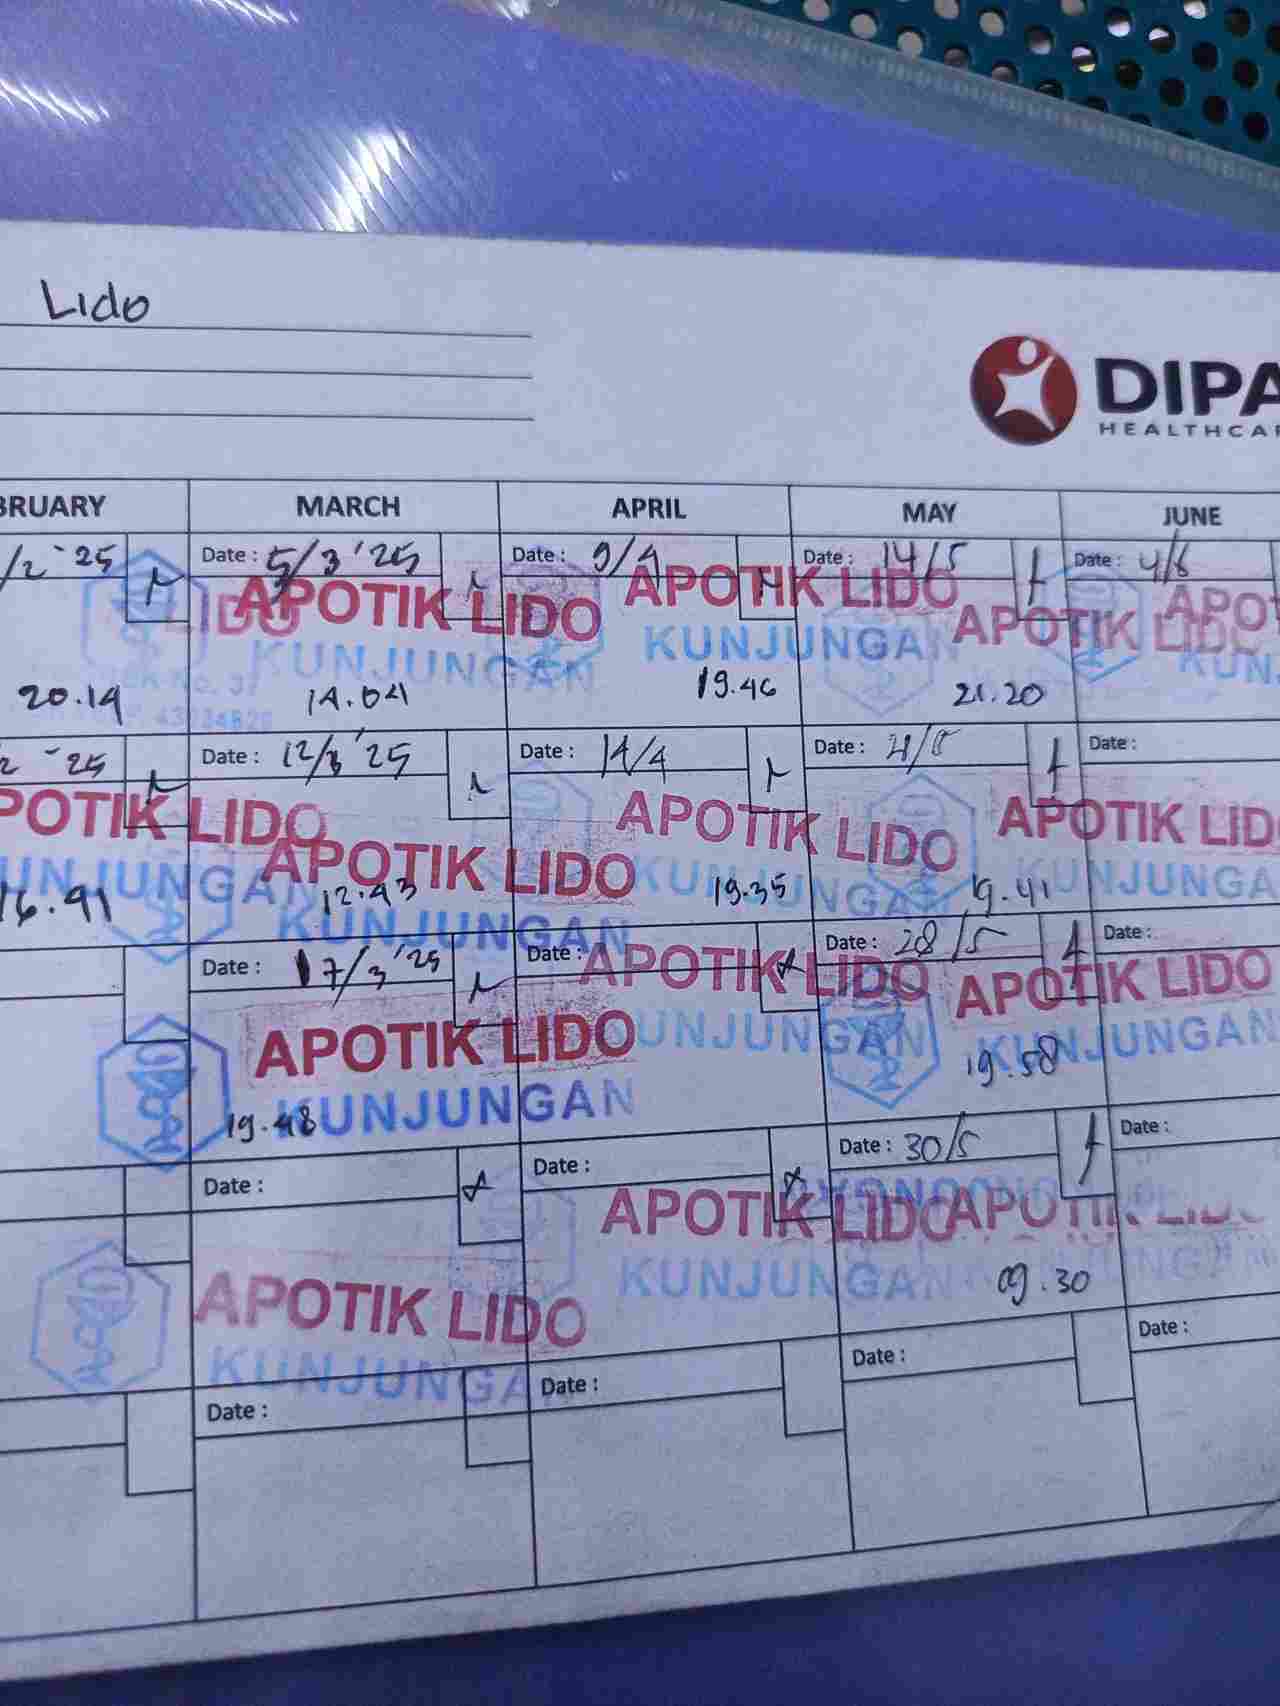 Lido
DIPA
HEALTHCAR
BRUARY MARCH APRIL MAY JUNE
/2 '25 Date : 5/3 '25 Date : 9/4 Date : 14/5 Date : 4/6
LIDO APOTIK LIDO APOTIK LIDO APOTIK LIDO APOT
KUNJUNGAN KUNJUNGAN KUNJ
20.14 14.04 19.46 21.20
2 '25 Date : 12/3 '25 Date : 14/4 Date : Date :
POTIK LIDO APOTIK LIDO APOTIK LIDO APOTIK LID
UNJUNGAN KUNJUNGAN KUNJUNGAN KUNJUNGA
16.41 12.43 19.35 19.41
Date : 17/3 '25 Date : Date : 28/5 Date :
APOTIK LIDO APOTIK LIDO APOTIK LIDO
KUNJUNGAN KUNJUNGAN KUNJUNGAN
19.48 19.58
Date : Date : Date : 30/5 Date :
APOTIK LIDO APOTIK LIDO APOTIK LIDO
KUNJUNGAN KUNJUNGAN
09.30
Date : Date : Date : Date :